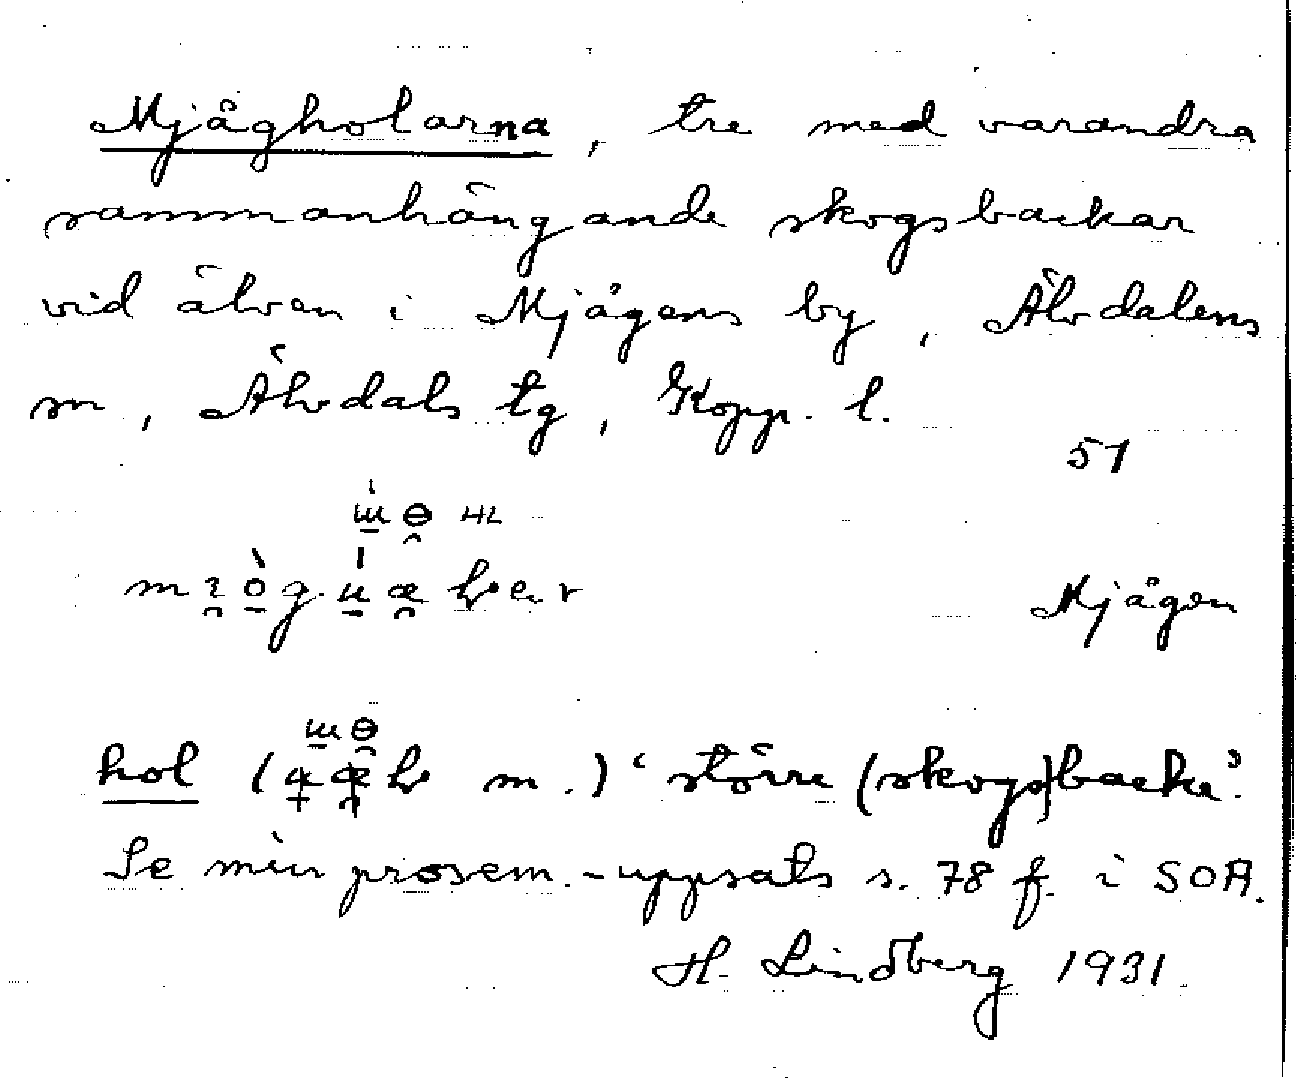 Mjågholarna, tre med varandra
sammanhängande skogsbackar
vid älven i Mjågens by, Älvdalens
sn, Älvdals tg, Kopp. l.
51
Mjågen
hol ( m.) ‘större (skogs)backe’.
Se min prosem.-uppsats s. 78 f. i SOA.
H. Lindberg 1931.